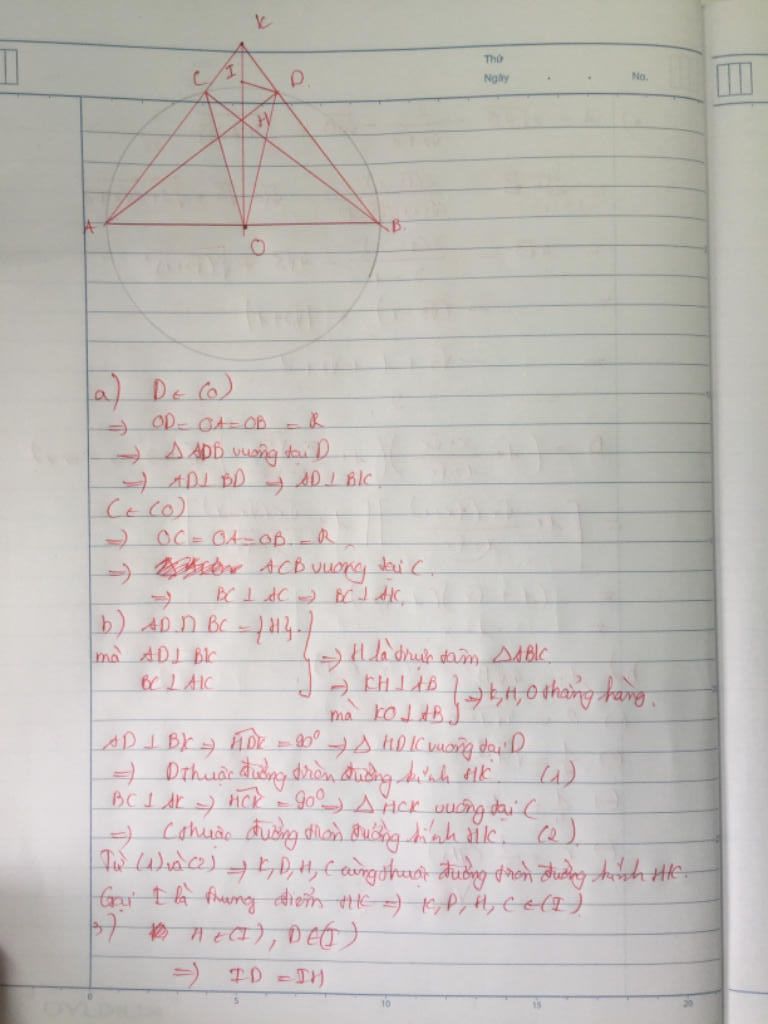 K
C I D
H
A B
O
Thứ
Ngày . . No.
a) D ∈ (O)
=> OD = OA = OB = R
=> △ ADB vuông tại D
=> AD ⊥ BD => AD ⊥ BK.
C ∈ (O)
=> OC = OA = OB = R
=> ACB vuông tại C.
=> BC ⊥ AC => BC ⊥ AK.
b) AD ∩ BC = {H}.
mà AD ⊥ BK => H là trực tâm △ABK.
BC ⊥ AK => KH ⊥ AB => K, H, O thẳng hàng.
mà KO ⊥ AB
AD ⊥ BK => HDK = 90° => △ HDK vuông tại D
=> D thuộc đường tròn đường kính HK. (1)
BC ⊥ AK => HCK = 90° => △ HCK vuông tại C
=> C thuộc đường tròn đường kính HK. (2)
Từ (1) và (2) => K, D, H, C cùng thuộc đường tròn đường kính HK.
Gọi I là trung điểm HK => K, D, H, C ∈ (I)
3) H ∈ (I), D ∈ (I)
=> ID = IH
0 5 10 15 20